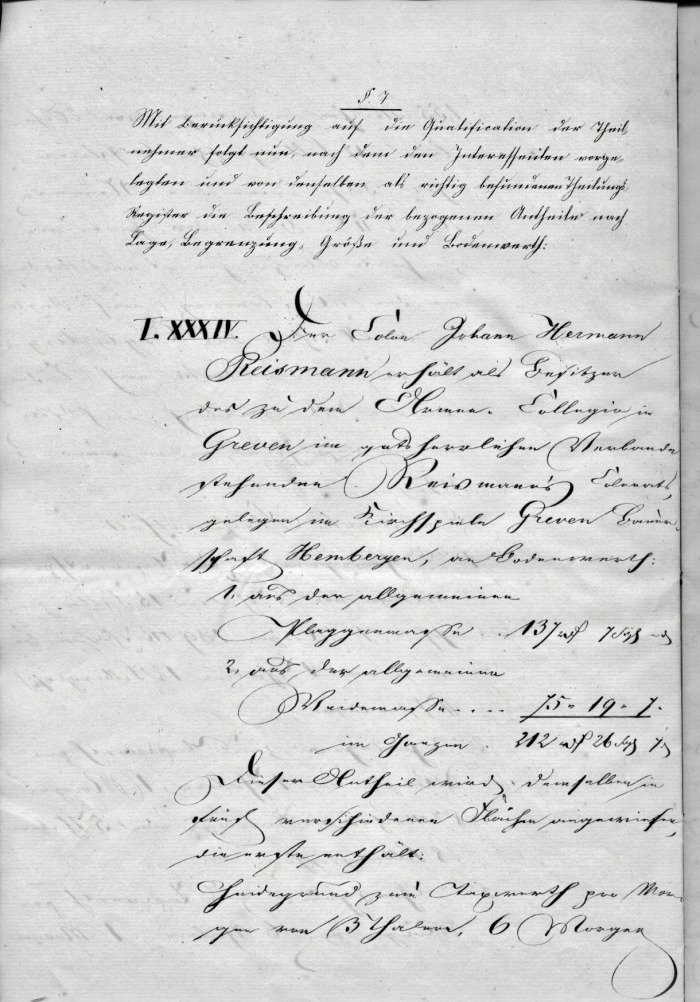 §. 7
Mit Berücksichtigung auf die Qualification der Theil,
nehmer folgt nun, nach dem den Interessenten vorge,
legten und von denselben als richtig befundenen Theilungs
Register die Beschreibung der bezogenen Antheile nach
Lage, Begrenzung, Größe und Bodenwerth:
I. XXXIV. Der Colon Johann Hermann
Reismann erhält als Besitzer
des zu dem Armen-Collegio in
Greven im gutsherrlichen Verbande
stehenden Reismann's Colonats,
gelegen im Kirchspiele Greven Bauer-
schaft Hembergen, an Bodenwerth:
1, aus der allgemeinen
Plaggenmasse . . 137 rℓ 7 Sgℓ
2, aus der allgemeinen
Weidemasse . . . . 75 " 19 " 7.
im Ganzen . 212 rℓ 26 Sgℓ 7
Dieser Antheil wird demselben in
fünf verschiedenen Flächen angewiesen,
die erste enthält:
Heidegrund zum Taxwerth pro Mor-
gen von 3 Thalern, 6 Morgen